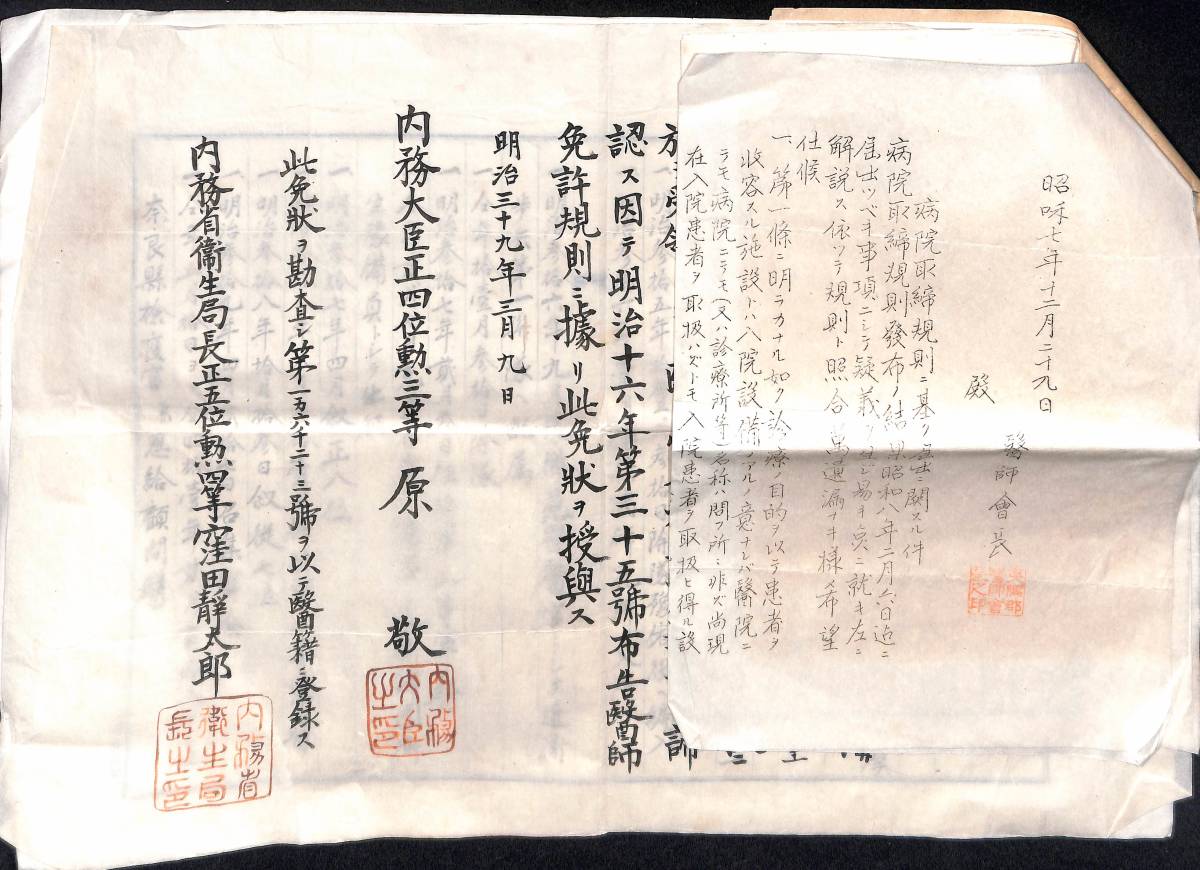 昭和七年十二月二十九日
醫師會長
殿
病院取締規則ニ基ク屆出ニ關スル件
病院取締規則發布ノ結果昭和八年二月六日迄ニ
屆出ツベキ事項ニシテ疑義ヲ生ジ易キ点ニ就キ左ニ
解説ス依ツテ規則ト照合萬遺漏ナキ樣希望
仕候
一、第一條ニ明ラカナル如ク診療ノ目的ヲ以テ患者ヲ
收容スル施設トハ入院設備アルノ意ナレバ醫院ニ
テモ病院ニテモ(又ハ診療所等)名称ハ問フ所ニ非ズ尚現
在入院患者ヲ取扱ハズトモ入院患者ヲ取扱ヒ得ル設
師
認ス因テ明治十六年第三十五號布告醫師
免許規則ニ據リ此免狀ヲ授與ス
明治三十九年三月九日
内務大臣正四位勲三等 原 敬
内務大臣之印
此免狀ヲ勘査シ第一万六千二十三號ヲ以テ醫籍ニ登録ス
内務省衞生局長正五位勲四等窪田靜太郎
内務省衞生局長之印